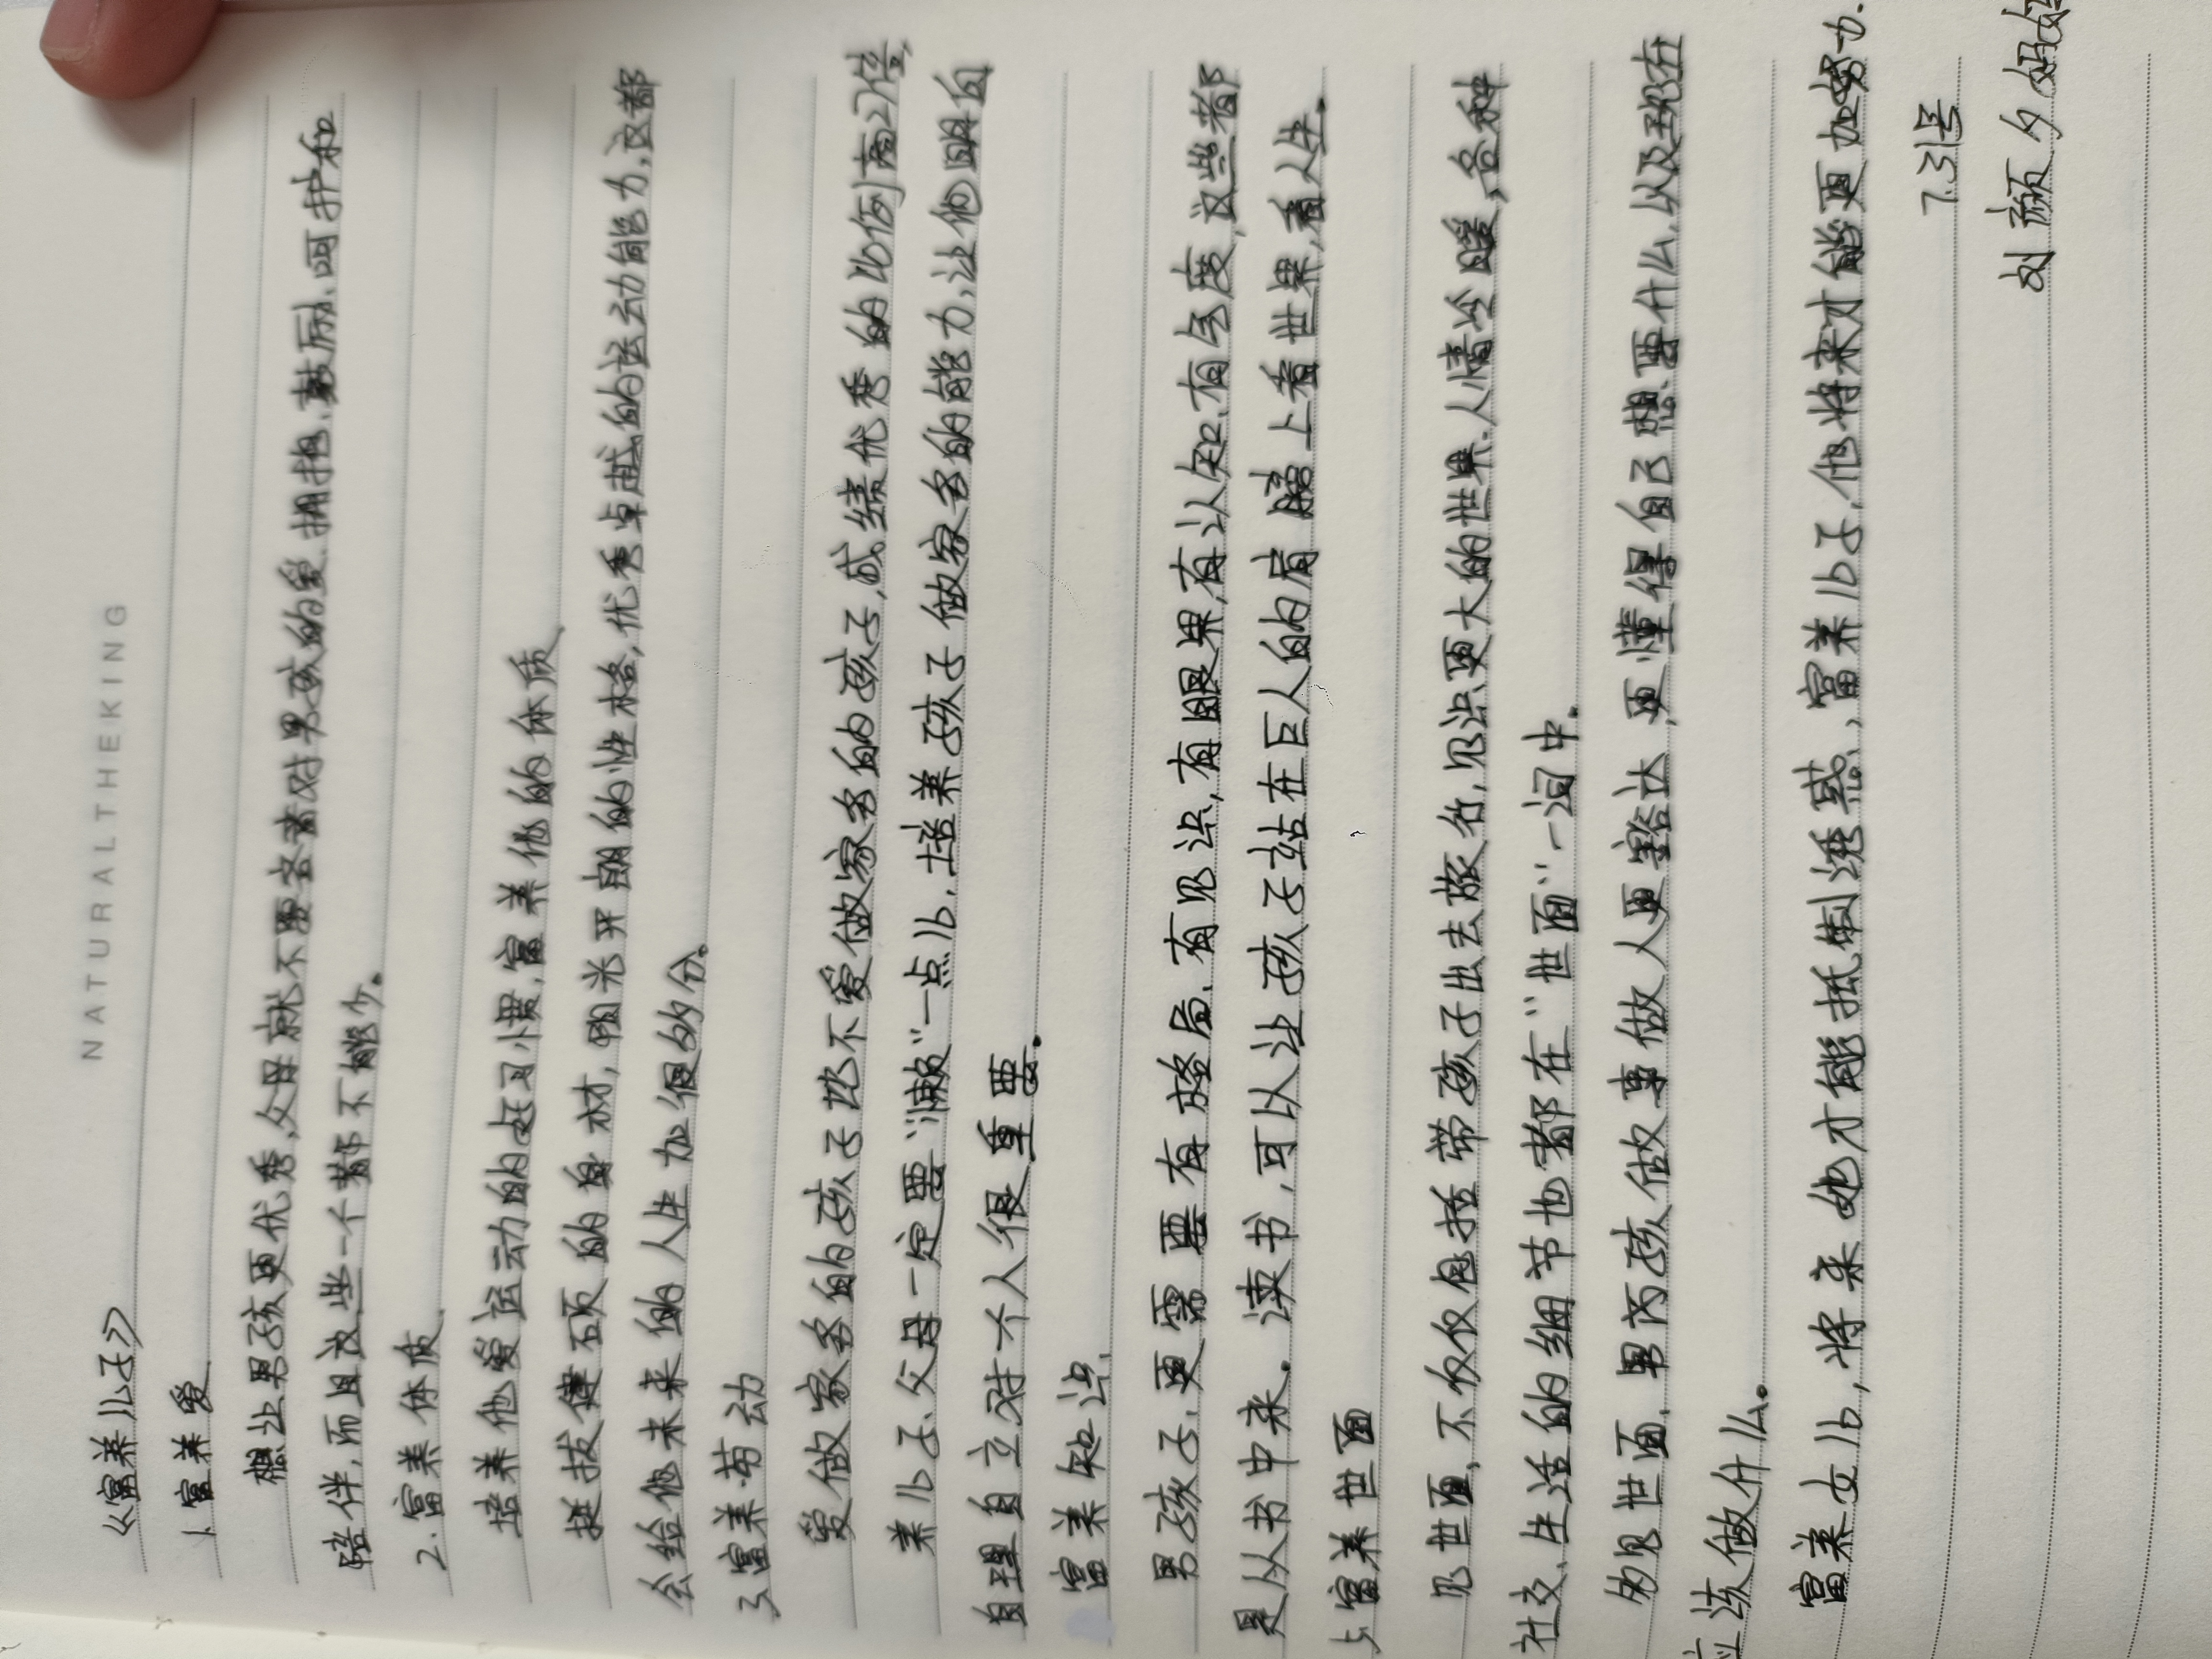 NATURALTHEKING
《富养儿子》
1、富养爱
想让男孩更优秀,父母就不要吝啬对男孩的爱、拥抱、鼓励、呵护和
陪伴,而且这些一个都不能少。
2.富养体质
培养他爱运动的好习惯,富养他的体质,
挺拔健硕的身材,阳光开朗的性格,优秀卓越的运动能力,这都
会给他未来的人生加很多分。
3、富养劳动
爱做家务的孩子比不爱做家务的孩子,成绩优秀的比例高27倍,
养儿子、父母一定要“懒”一点儿,培养孩子做家务的能力,让他明白
自理自立对个人很重要。
富养知识、
男孩子,更需要有格局、有见识,有眼界,有认知、有气度,这些都
是从书中来。读书,可以让孩子站在巨人的肩膀上看世界,看人生。
5、富养世面
见世面,不仅仅包括带孩子出去旅行,见识更大的世界、人情冷暖,各种
社交、生活的细节也都在“世面”一词中。
多见世面,男孩做事做人更豁达,更懂得自己想要什么,以及现在
应该做什么。
富养女儿,将来她才能抵制诱惑、富养儿子,他将来才能更加努力.
7.31号
刘颜夕妈妈